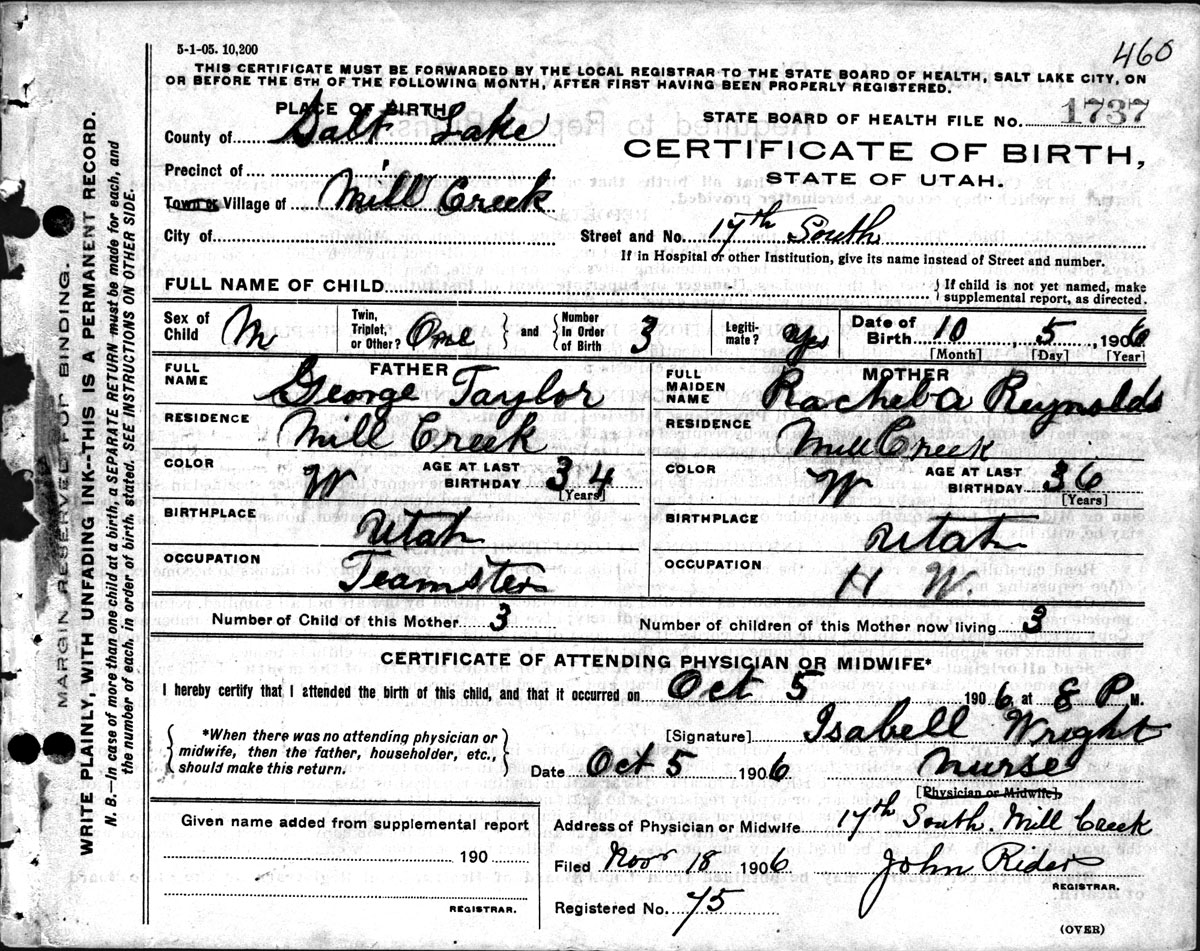 460
5-1-05. 10,200
THIS CERTIFICATE MUST BE FORWARDED BY THE LOCAL REGISTRAR TO THE STATE BOARD OF HEALTH, SALT LAKE CITY, ON
OR BEFORE THE 5TH OF THE FOLLOWING MONTH, AFTER FIRST HAVING BEEN PROPERLY REGISTERED.
PLACE OF BIRTH
County of Salt Lake
Precinct of
Town or Village of Mill Creek
City of
STATE BOARD OF HEALTH FILE NO. 1737
CERTIFICATE OF BIRTH,
STATE OF UTAH.
Street and No. 17th South
If in Hospital or other Institution, give its name instead of Street and number.
FULL NAME OF CHILD { If child is not yet named, make
supplemental report, as directed.
Sex of Child M Twin, Triplet, or Other? One } and { Number In Order of Birth 3 Legiti- mate? yes Date of Birth 10, 5, 1906
[Month] [Day] [Year]
FATHER
FULL NAME George Taylor
RESIDENCE Mill Creek
COLOR W AGE AT LAST BIRTHDAY 34
[Years]
BIRTHPLACE Utah
OCCUPATION Teamster
MOTHER
FULL MAIDEN NAME Rachel A Reynolds
RESIDENCE Mill Creek
COLOR W AGE AT LAST BIRTHDAY 36
[Years]
BIRTHPLACE Utah
OCCUPATION H W.
Number of Child of this Mother 3 Number of children of this Mother now living 3
CERTIFICATE OF ATTENDING PHYSICIAN OR MIDWIFE*
I hereby certify that I attended the birth of this child, and that it occurred on Oct 5 1906 at 8 P M.
{ *When there was no attending physician or
midwife, then the father, householder, etc.,
should make this return. }
[Signature] Isabell Wright
Date Oct 5 1906 Nurse
[Physician or Midwife]
Given name added from supplemental report
190
REGISTRAR.
Address of Physician or Midwife 17th South. Mill Creek
Filed Nov 18 1906 John Rider
REGISTRAR.
Registered No. 75
(OVER)
MARGIN RESERVED FOR BINDING.
WRITE PLAINLY, WITH UNFADING INK--THIS IS A PERMANENT RECORD.
N. B.--In case of more than one child at a birth, a SEPARATE RETURN must be made for each, and
the number of each, in order of birth, stated. SEE INSTRUCTIONS ON OTHER SIDE.